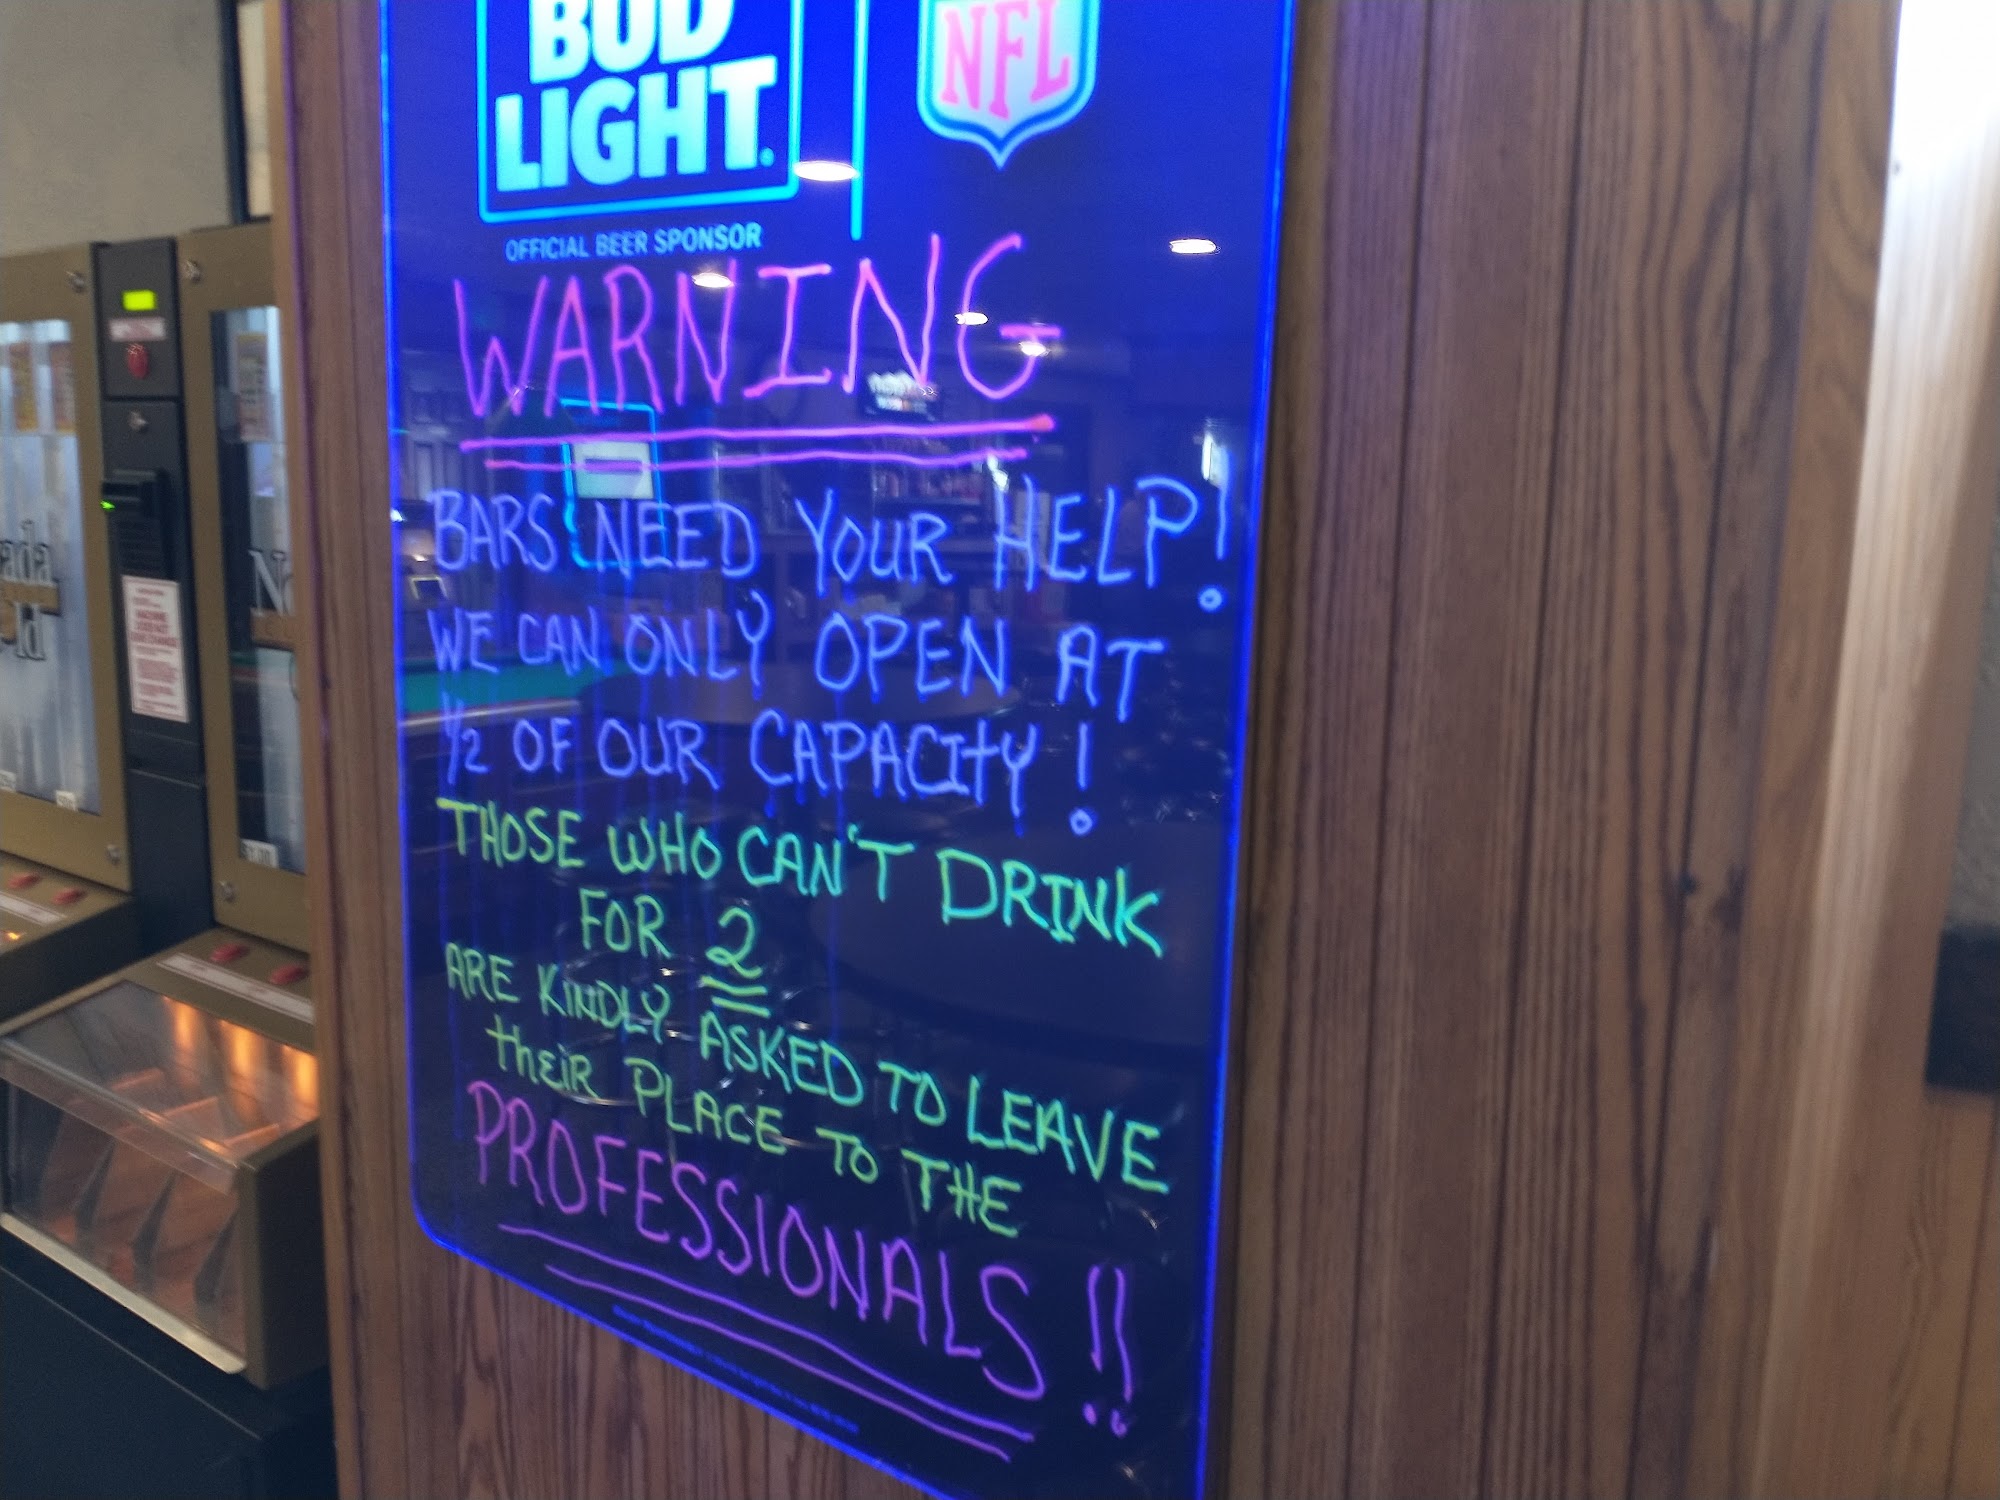 BUD
LIGHT
NFL
OFFICIAL BEER SPONSOR
WARNING
BARS NEED YOUR HELP!
WE CAN ONLY OPEN AT
1/2 OF OUR CAPACITY!
THOSE WHO CAN'T DRINK
FOR 2
ARE KINDLY ASKED TO LEAVE
theiR PLACE TO THE
PROFESSIONALS!!